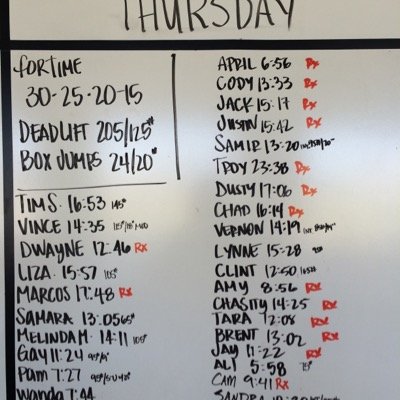 THURSDAY
FOR TIME
30-25-20-15
DEADLIFT 205/125#
BOX JUMPS 24/20"
TIM S. 16:53 145#
VINCE 14:35
DWAYNE 12:46 Rx
LIZA 15:57 105#
MARCOS 17:48 Rx
SAMARA 13:05 65#
MELINDA M. 14:11 105#
Gay 11:24
Pam 7:27
Wanda 7:44
APRIL 6:56 Rx
CODY 13:33 Rx
JACK 15:17 Rx
JUSTIN 15:42 Rx
SAMIR 13:20
TROY 23:38 Rx
DUSTY 17:06 Rx
CHAD 16:14 Rx
VERNON 14:19
LYNNE 15:28 95#
CLINT 12:50 165#
AMY 8:56 Rx
CHASITY 14:25 Rx
TARA 12:08 Rx
BRENT 13:02 Rx
JAY 11:22 Rx
ALI 5:58 75#
CAM 9:41 Rx
SANDRA